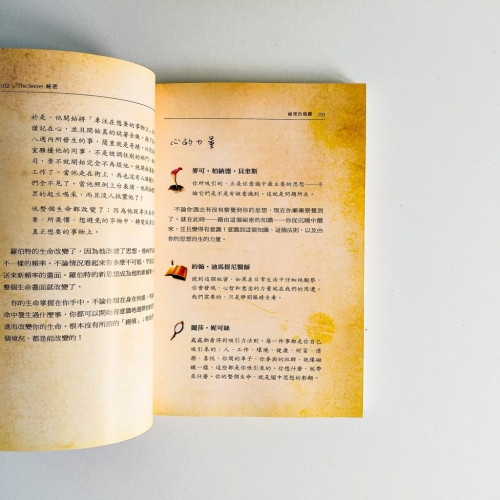 032 The Secret 秘密
於是，他開始將「專注在想要的事物上」
謹記在心，並且開始真的試著去做。接下來
六到八週內所發生的事，簡直就是奇蹟。以前
室騷擾他的同事，不是被調往別的部門，
司，要不就開始完全不再煩他。他開始
工作了。當他走在街上，再也沒有人
們全不見了。當他照例上台表演，
眾的起立喝采，而且沒人詰難他了！
他整個生命都改變了；因為他從專注在
要、所畏懼、想避免的事物中，轉變為
真正想要的事物上。
羅伯特的生命改變了，因為他改變了思想。他向宇宙
一樣的頻率。不論情況看起來有多麼不可能，宇宙
送來新頻率的畫面。羅伯特的新思想成為他的新頻率，
整個生命畫面就改變了。
你的生命掌握在你手中。不論你現在身在何處，
命中發生過什麼事，你都可以開始有意識地選擇
進而改變你的生命。根本沒有所謂的「絕境」；你
個境況，都是能改變的！
祕密的揭露 033
心的力量
麥可・柏納德・貝奎斯
你所吸引的，正是你意識中最主要的思想——不
論它們是不是有被意識到。這就是問題所在。
不論你過去有沒有察覺到你的思想，現在你漸漸察覺到
了。就在此時——藉由這個祕密的知識——你從沉睡中醒
來，並且變得有意識！意識到這個知識、這個法則，以及由
你的思想而生的力量。
約翰・迪馬提尼醫師
說到這個祕密，如果在日常生活中仔細地觀察，
你會發現，心智和意念的力量就在我們的周遭。
我們需要的，只是睜開眼睛去看。
麗莎・妮可絲
處處都看得到吸引力法則。每一件事都是你自己
吸引來的：人、工作、環境、健康、財富、債
務、喜悅、你開的車子、你參與的社群。就像磁
鐵一樣，這些都是你吸引來的。你想什麼，就帶
來什麼。你的整個生命，就是腦中思想的彰顯。